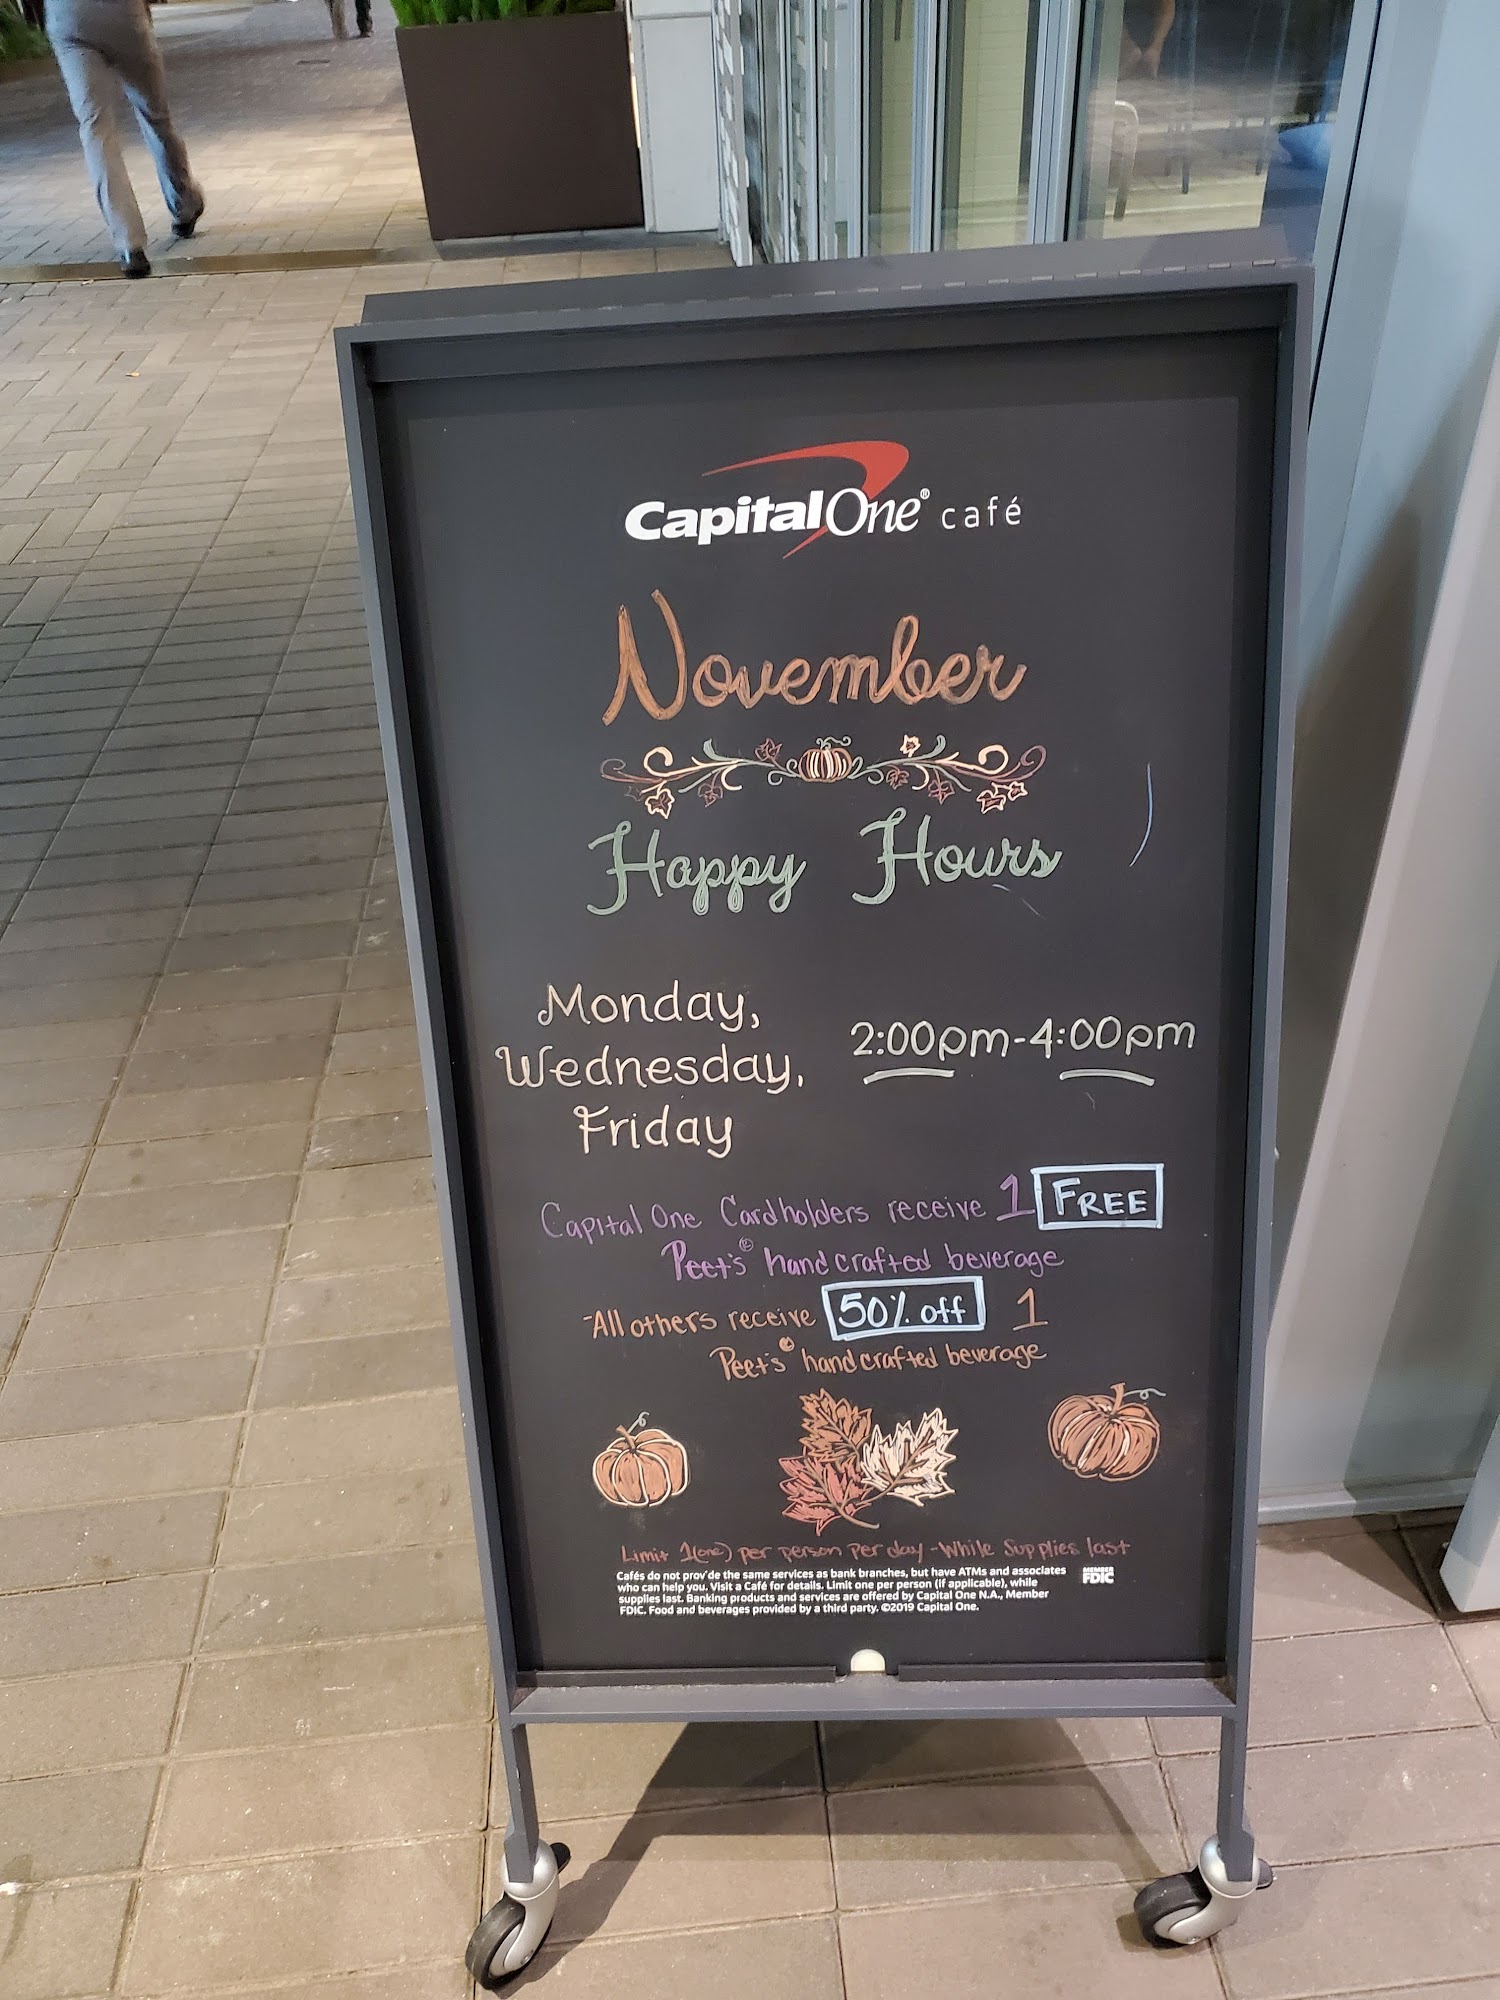 Capital One® café
November
Happy Hours
Monday,
Wednesday,
Friday
2:00pm-4:00pm
Capital One Cardholders receive 1 FREE
Peet's® handcrafted beverage
-All others receive 50% off 1
Peet's® handcrafted beverage
Limit 1(one) per person per day - While Supplies last
Cafés do not provide the same services as bank branches, but have ATMs and associates
who can help you. Visit a Café for details. Limit one per person (if applicable), while
supplies last. Banking products and services are offered by Capital One N.A., Member
FDIC. Food and beverages provided by a third party. ©2019 Capital One.
MEMBER
FDIC